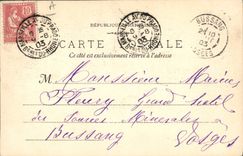 RÉPUBLIQUE
CARTE POSTALE
Ce côté est exclusivement réservé à l'adresse
BUSSANG
03
03
Monsieur Marius
Fleury Grand Hôtel
des Sources Minérales
Bussang Vosges